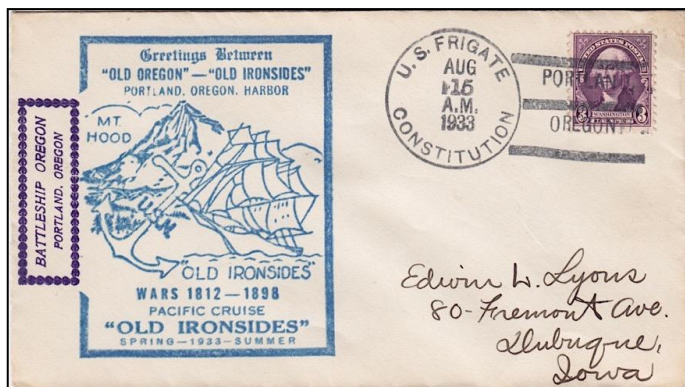 BATTLESHIP OREGON
PORTLAND, OREGON
Greetings Between
"OLD OREGON" — "OLD IRONSIDES"
PORTLAND, OREGON, HARBOR
MT.
HOOD
U.S.N.
"OLD IRONSIDES"
WARS 1812—1898
PACIFIC CRUISE
"OLD IRONSIDES"
SPRING—1933—SUMMER
U.S. FRIGATE
AUG
15
A.M.
1933
CONSTITUTION
PORTLAND
OREGON
UNITED STATES POSTAGE
WASHINGTON
3 3
Edwin W. Lyons
80-Fremont Ave.
Dubuque,
Iowa